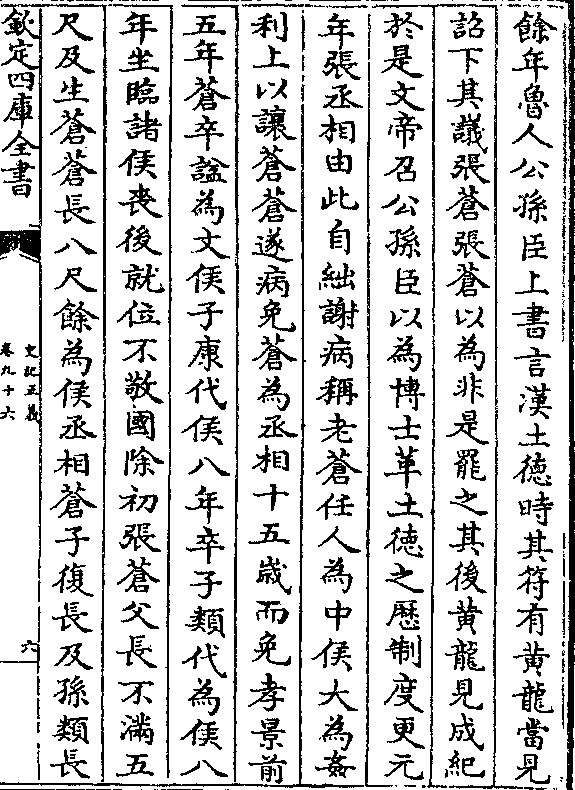 餘年魯人公孫臣上書言漢土徳時其符有黄龍當見
詔下其議張蒼張蒼以為非是罷之其後黄龍見成紀
於是文帝召公孫臣以為博士草土徳之厯制度更元
年張丞相由此自絀謝病稱老蒼任人為中侯大為姦
利上以讓蒼蒼遂病免蒼為丞相十五嵗而免孝景前
五年蒼卒諡為文侯子康代侯八年卒子類代為侯八
年坐臨諸侯喪後就位不敬國除初張蒼父長不滿五
尺及生蒼蒼長八尺餘為侯丞相蒼子復長及孫類長
欽定四庫全書
史記正義
卷九十六
六